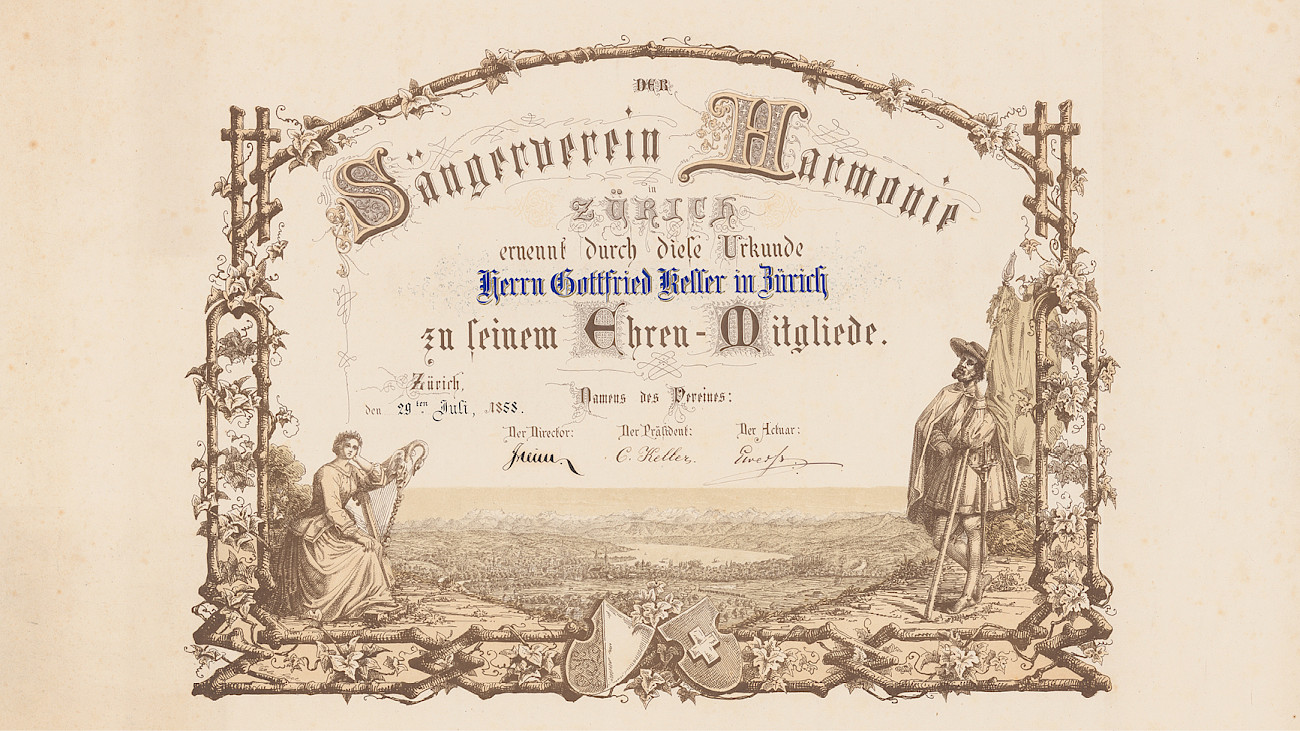 DER
Sängerverein Harmonie
in
ZÜRICH
ernennt durch diese Urkunde
Herrn Gottfried Keller in Zürich
zu seinem Ehren-Mitgliede.
Zürich,
den 29ten Juli, 1858.
Namens des Vereines:
Der Director: Der Präsident: Der Actuar:
C. Keller